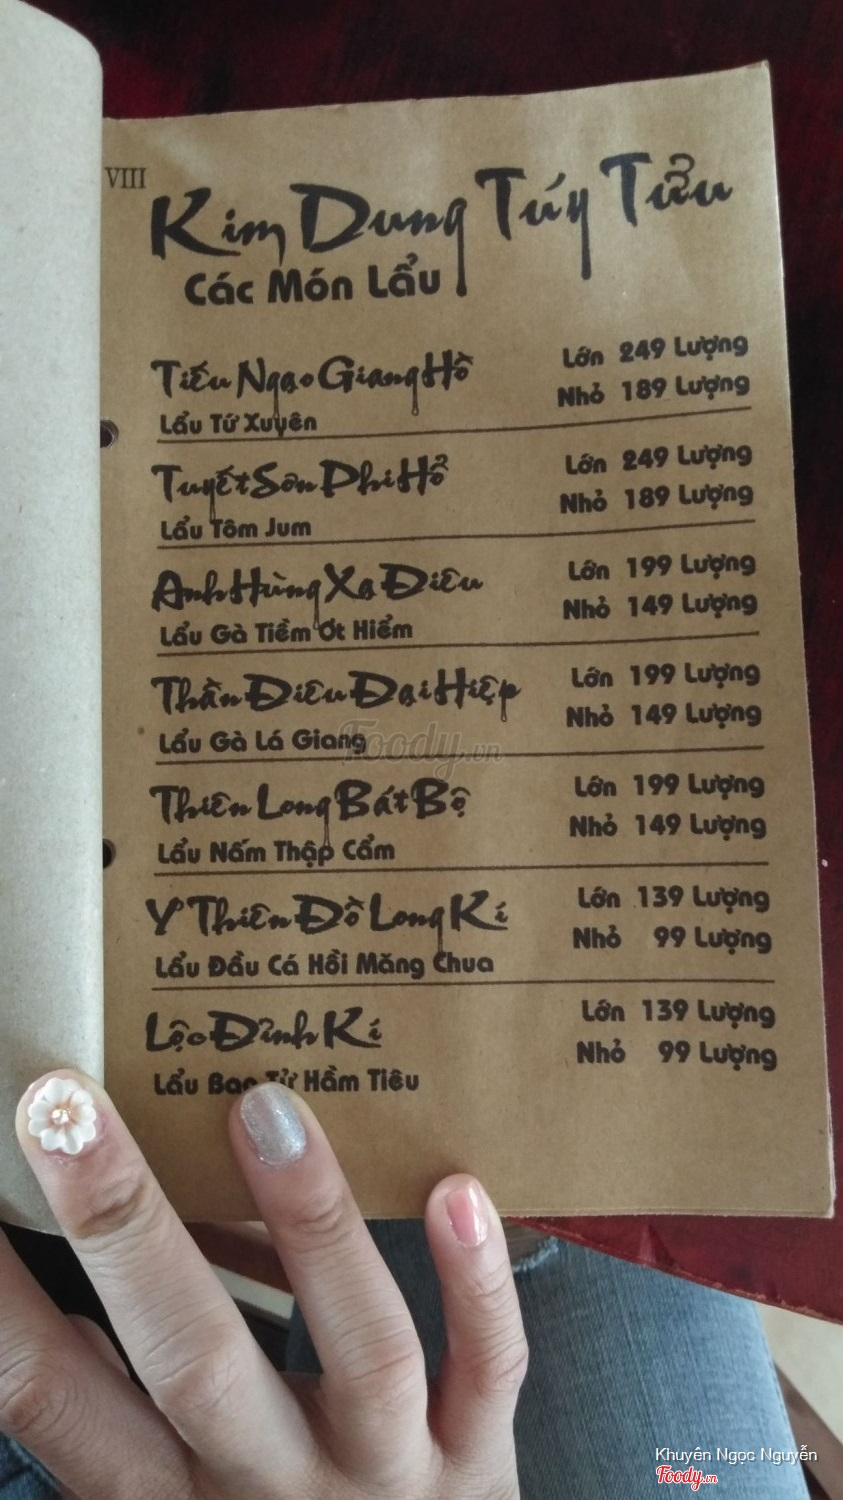 VIII
Kim Dung Túy Tửu
Các Món Lẩu
Tiếu Ngạo Giang Hồ
Lớn 249 Lượng
Nhỏ 189 Lượng
Lẩu Tứ Xuyên
Tuyết Sơn Phi Hổ
Lớn 249 Lượng
Nhỏ 189 Lượng
Lẩu Tôm Jum
Anh Hùng Xạ Điêu
Lớn 199 Lượng
Nhỏ 149 Lượng
Lẩu Gà Tiềm Ớt Hiểm
Thần Điêu Đại Hiệp
Lớn 199 Lượng
Nhỏ 149 Lượng
Lẩu Gà Lá Giang
Foody.vn
Thiên Long Bát Bộ
Lớn 199 Lượng
Nhỏ 149 Lượng
Lẩu Nấm Thập Cẩm
Ỷ Thiên Đồ Long Kí
Lớn 139 Lượng
Nhỏ 99 Lượng
Lẩu Đầu Cá Hồi Măng Chua
Lộc Đỉnh Kí
Lớn 139 Lượng
Nhỏ 99 Lượng
Lẩu Bao Tử Hầm Tiêu
Khuyên Ngọc Nguyễn
Foody.vn